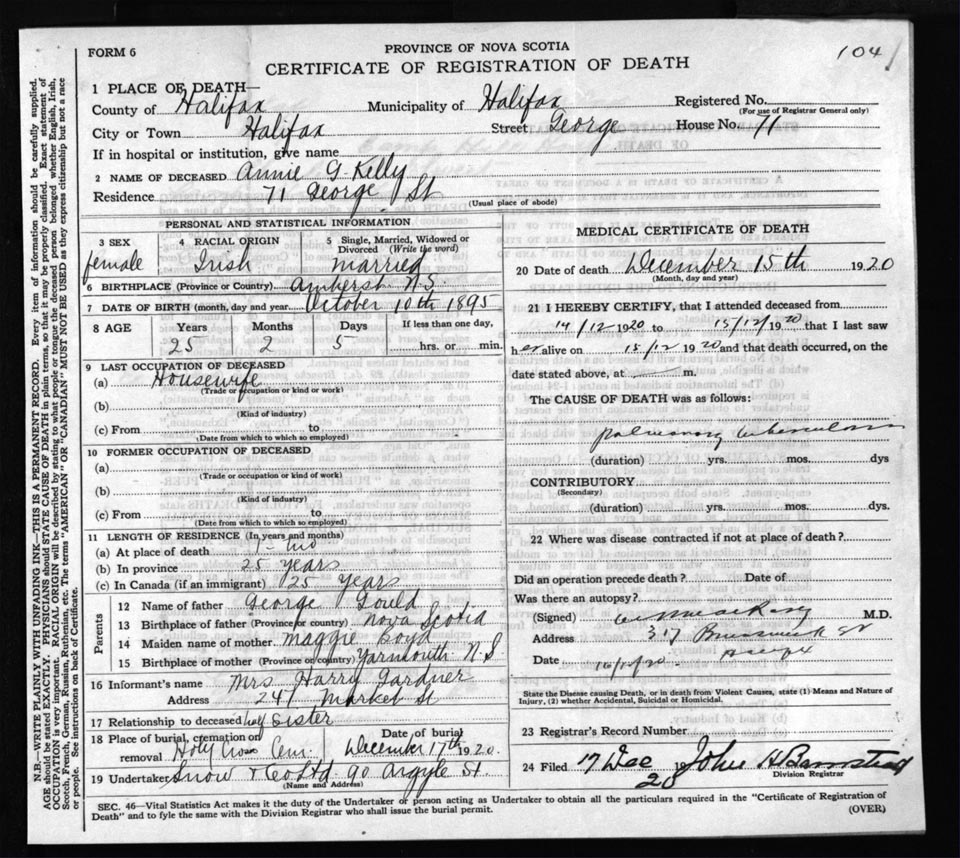 FORM 6
PROVINCE OF NOVA SCOTIA
104
CERTIFICATE OF REGISTRATION OF DEATH
1 PLACE OF DEATH—
County of Halifax Municipality of Halifax Registered No.
(For use of Registrar General only)
City or Town Halifax Street George House No. 71
If in hospital or institution, give name
2 NAME OF DECEASED Annie G. Kelly
Residence 71 George St
(Usual place of abode)
PERSONAL AND STATISTICAL INFORMATION
3 SEX
female
4 RACIAL ORIGIN
Irish
5 Single, Married, Widowed or
Divorced (Write the word)
married
6 BIRTHPLACE (Province or Country) Amherst N.S.
7 DATE OF BIRTH (month, day and year) October 10th 1895
8 AGE Years Months Days If less than one day,
25 2 5 hrs. or min.
9 LAST OCCUPATION OF DECEASED
(a) Housewife
(Trade or occupation or kind or work)
(b)
(Kind of industry)
(c) From to
(Date from which to which so employed)
10 FORMER OCCUPATION OF DECEASED
(a)
(Trade or occupation or kind of work)
(b)
(Kind of industry)
(c) From to
(Date from which to which so employed)
11 LENGTH OF RESIDENCE (In years and months)
(a) At place of death 1- mo
(b) In province 25 years
(c) In Canada (if an immigrant) 25 years
Parents
12 Name of father George Gould
13 Birthplace of father (Province or country) Nova Scotia
14 Maiden name of mother Maggie Boyd
15 Birthplace of mother (Province or country) Yarmouth N.S
16 Informant's name Mrs Harry Gardner
Address 247 Market St
17 Relationship to deceased Sister
18 Place of burial, cremation or
removal Holy Cross Cem.
Date of burial
December 17th 1920.
19 Undertaker Snow & Co Ltd 90 Argyle St.
(Name and Address)
MEDICAL CERTIFICATE OF DEATH
20 Date of death December 15th 1920
(Month, day and year)
21 I HEREBY CERTIFY, that I attended deceased from
14/12 1920 to 15/12/1920 that I last saw
her alive on 15/12 1920 and that death occurred, on the
date stated above, at m.
The CAUSE OF DEATH was as follows:
pulmonary tuberculosis
(duration) yrs. mos. dys
CONTRIBUTORY
(Secondary)
(duration) yrs. mos. dys.
22 Where was disease contracted if not at place of death?
Did an operation precede death? Date of
Was there an autopsy?
(Signed) M.D.
Address 317 Brunswick St
Date
State the Disease causing Death, or in death from Violent Causes, state (1) Means and Nature of
Injury, (2) whether Accidental, Suicidal or Homicidal.
23 Registrar's Record Number
24 Filed 17 Dec 1920 John H Barnstead
Division Registrar
SEC. 46—Vital Statistics Act makes it the duty of the Undertaker or person acting as Undertaker to obtain all the particulars required in the "Certificate of Registration of
Death" and to fyle the same with the Division Registrar who shall issue the burial permit.
(OVER)
N.B.—WRITE PLAINLY WITH UNFADING INK—THIS IS A PERMANENT RECORD. Every item of information should be carefully supplied.
AGE should be stated EXACTLY. PHYSICIANS should STATE CAUSE OF DEATH in plain terms, so that it may be properly classified. Exact statement of
OCCUPATION is very important. RACIAL ORIGIN will be described by stating to what people or tongue the deceased person belonged whether English, Irish,
Scotch, French, German, Russian, Ruthenian, etc. The terms "AMERICAN" or "CANADIAN" MUST NOT BE USED as they express citizenship but not a race
or people. See instructions on back of Certificate.